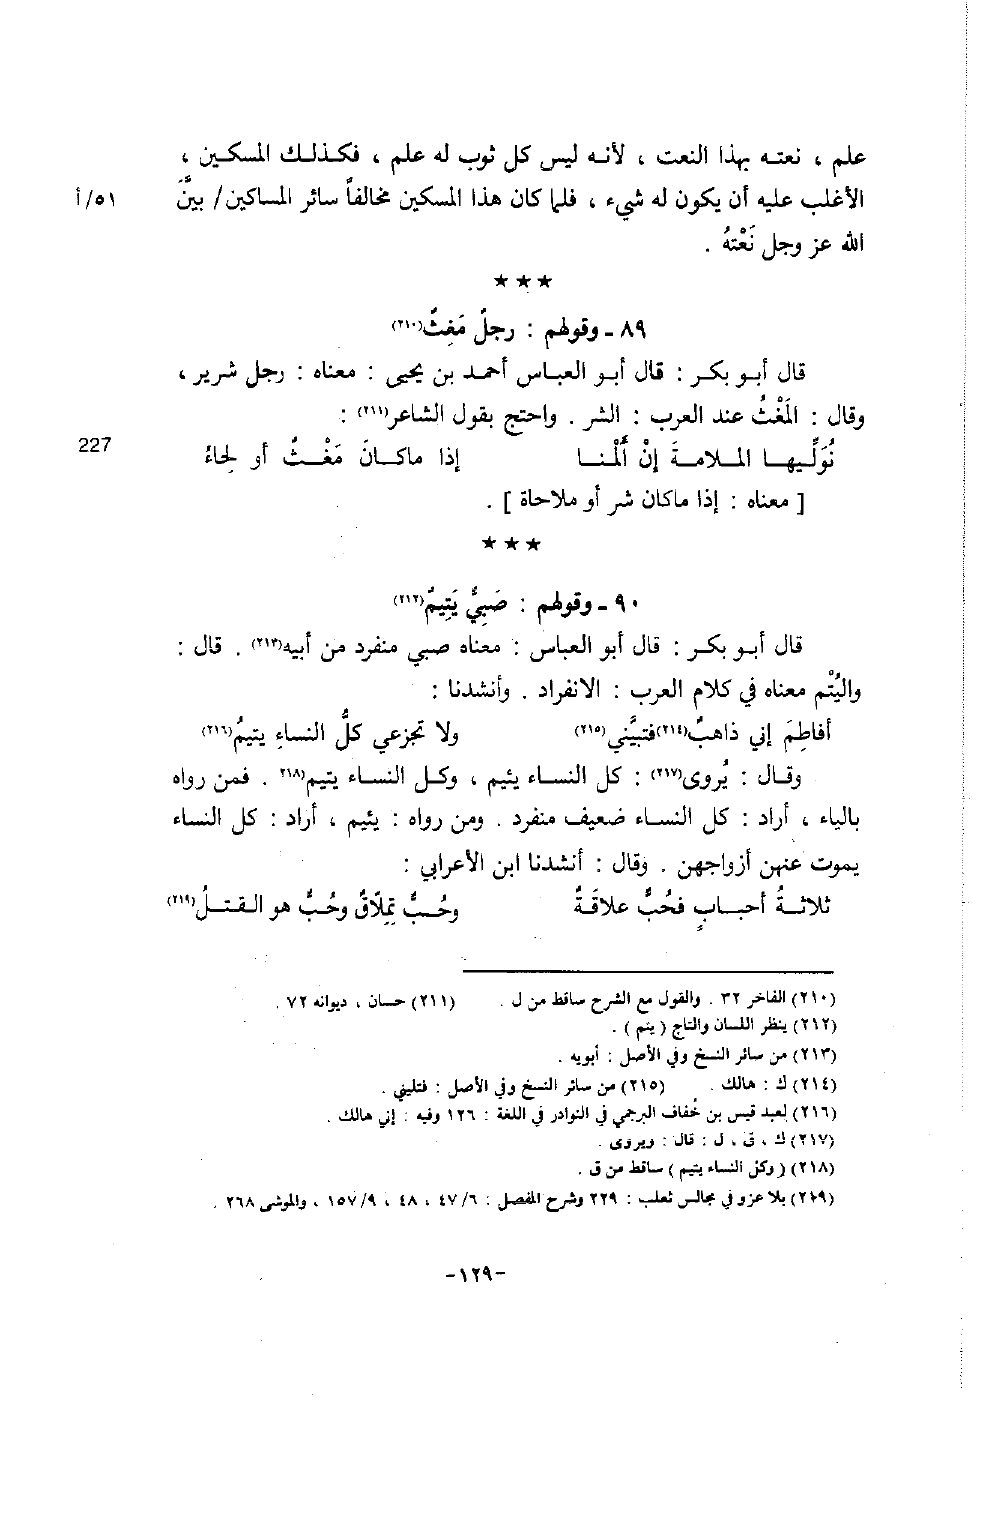 علم ، نعته بهذا النعت ، لأنه ليس كل ثوب له علم ، فكذلك المسكين ،
الأغلب عليه أن يكون له شيء ، فلما كان هذا المسكين مخالفاً سائر المساكين/ بيَّنَ ٥١/أ
الله عز وجل نَعْتهُ .
★★★
٨٩ ـ وقولهم : رجلٌ مَغِثٌ(٢١٠)
قال أبو بكر : قال أبو العباس أحمد بن يحيى : معناه : رجل شرير ،
وقال : المَغْثُ عند العرب : الشر . واحتج بقول الشاعر(٢١١) :
227
نُوَلِّيها الملامةَ إنْ أَلمْنا إذا ماكانَ مَغْثٌ أو لِحاءُ
[ معناه : إذا ماكان شر أو ملاحاة ] .
★★★
٩٠ ـ وقولهم : صَبِيٌّ يَتِيمٌ(٢١٢)
قال أبو بكر : قال أبو العباس : معناه صبي منفرد من أبيه(٢١٣) . قال :
واليُتْم معناه في كلام العرب : الانفراد . وأنشدنا :
أفاطِمَ إني ذاهبٌ(٢١٤)فتبيَّني(٢١٥) ولا تجزعي كلُّ النساءِ يتيمُ(٢١٦)
وقال : يُروى(٢١٧) : كل النساء يئيم ، وكل النساء يتيم(٢١٨) . فمن رواه
بالياء ، أراد : كل النساء ضعيف منفرد . ومن رواه : يئيم ، أراد : كل النساء
يموت عنهن أزواجهن . وقال : أنشدنا ابن الأعرابي :
ثلاثةُ أحبابٍ فحُبٌّ علاقَةٌ وحُبٌّ تِمِلاّقٌ وحُبٌّ هو القتلُ(٢١٩)
(٢١٠) الفاخر ٣٢ . والقول مع الشرح ساقط من ل . (٢١١) حسان ، ديوانه ٧٢ .
(٢١٢) ينظر اللسان والتاج ( يتم ) .
(٢١٣) من سائر النسخ وفي الأصل : أبويه .
(٢١٤) ك : هالك . (٢١٥) من سائر النسخ وفي الأصل : فتليني .
(٢١٦) لعبد قيس بن خُفاف البرجمي في النوادر في اللغة : ١٢٦ وفيه : إني هالك .
(٢١٧) ك ، ق ، ل : قال : ويروى .
(٢١٨) ( وكل النساء يتيم ) ساقط من ق .
(٢١٩) بلا عزو في مجالس ثعلب : ٢٢٩ وشرح المفصل : ٤٧/٦ ، ٤٨ ، ١٥٧/٩ ، والموشى ٢٦٨ .
-١٢٩-